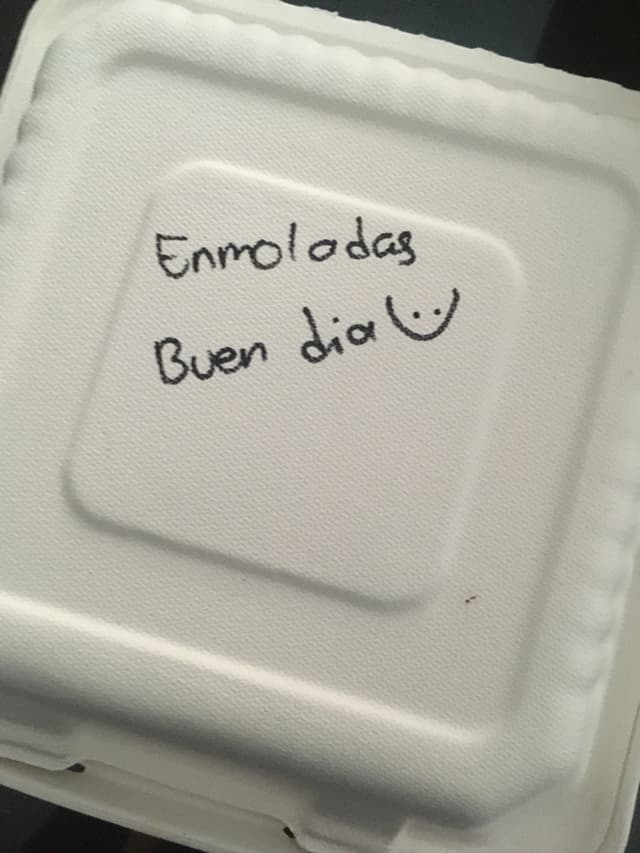 Enmoladas
Buen dia :)